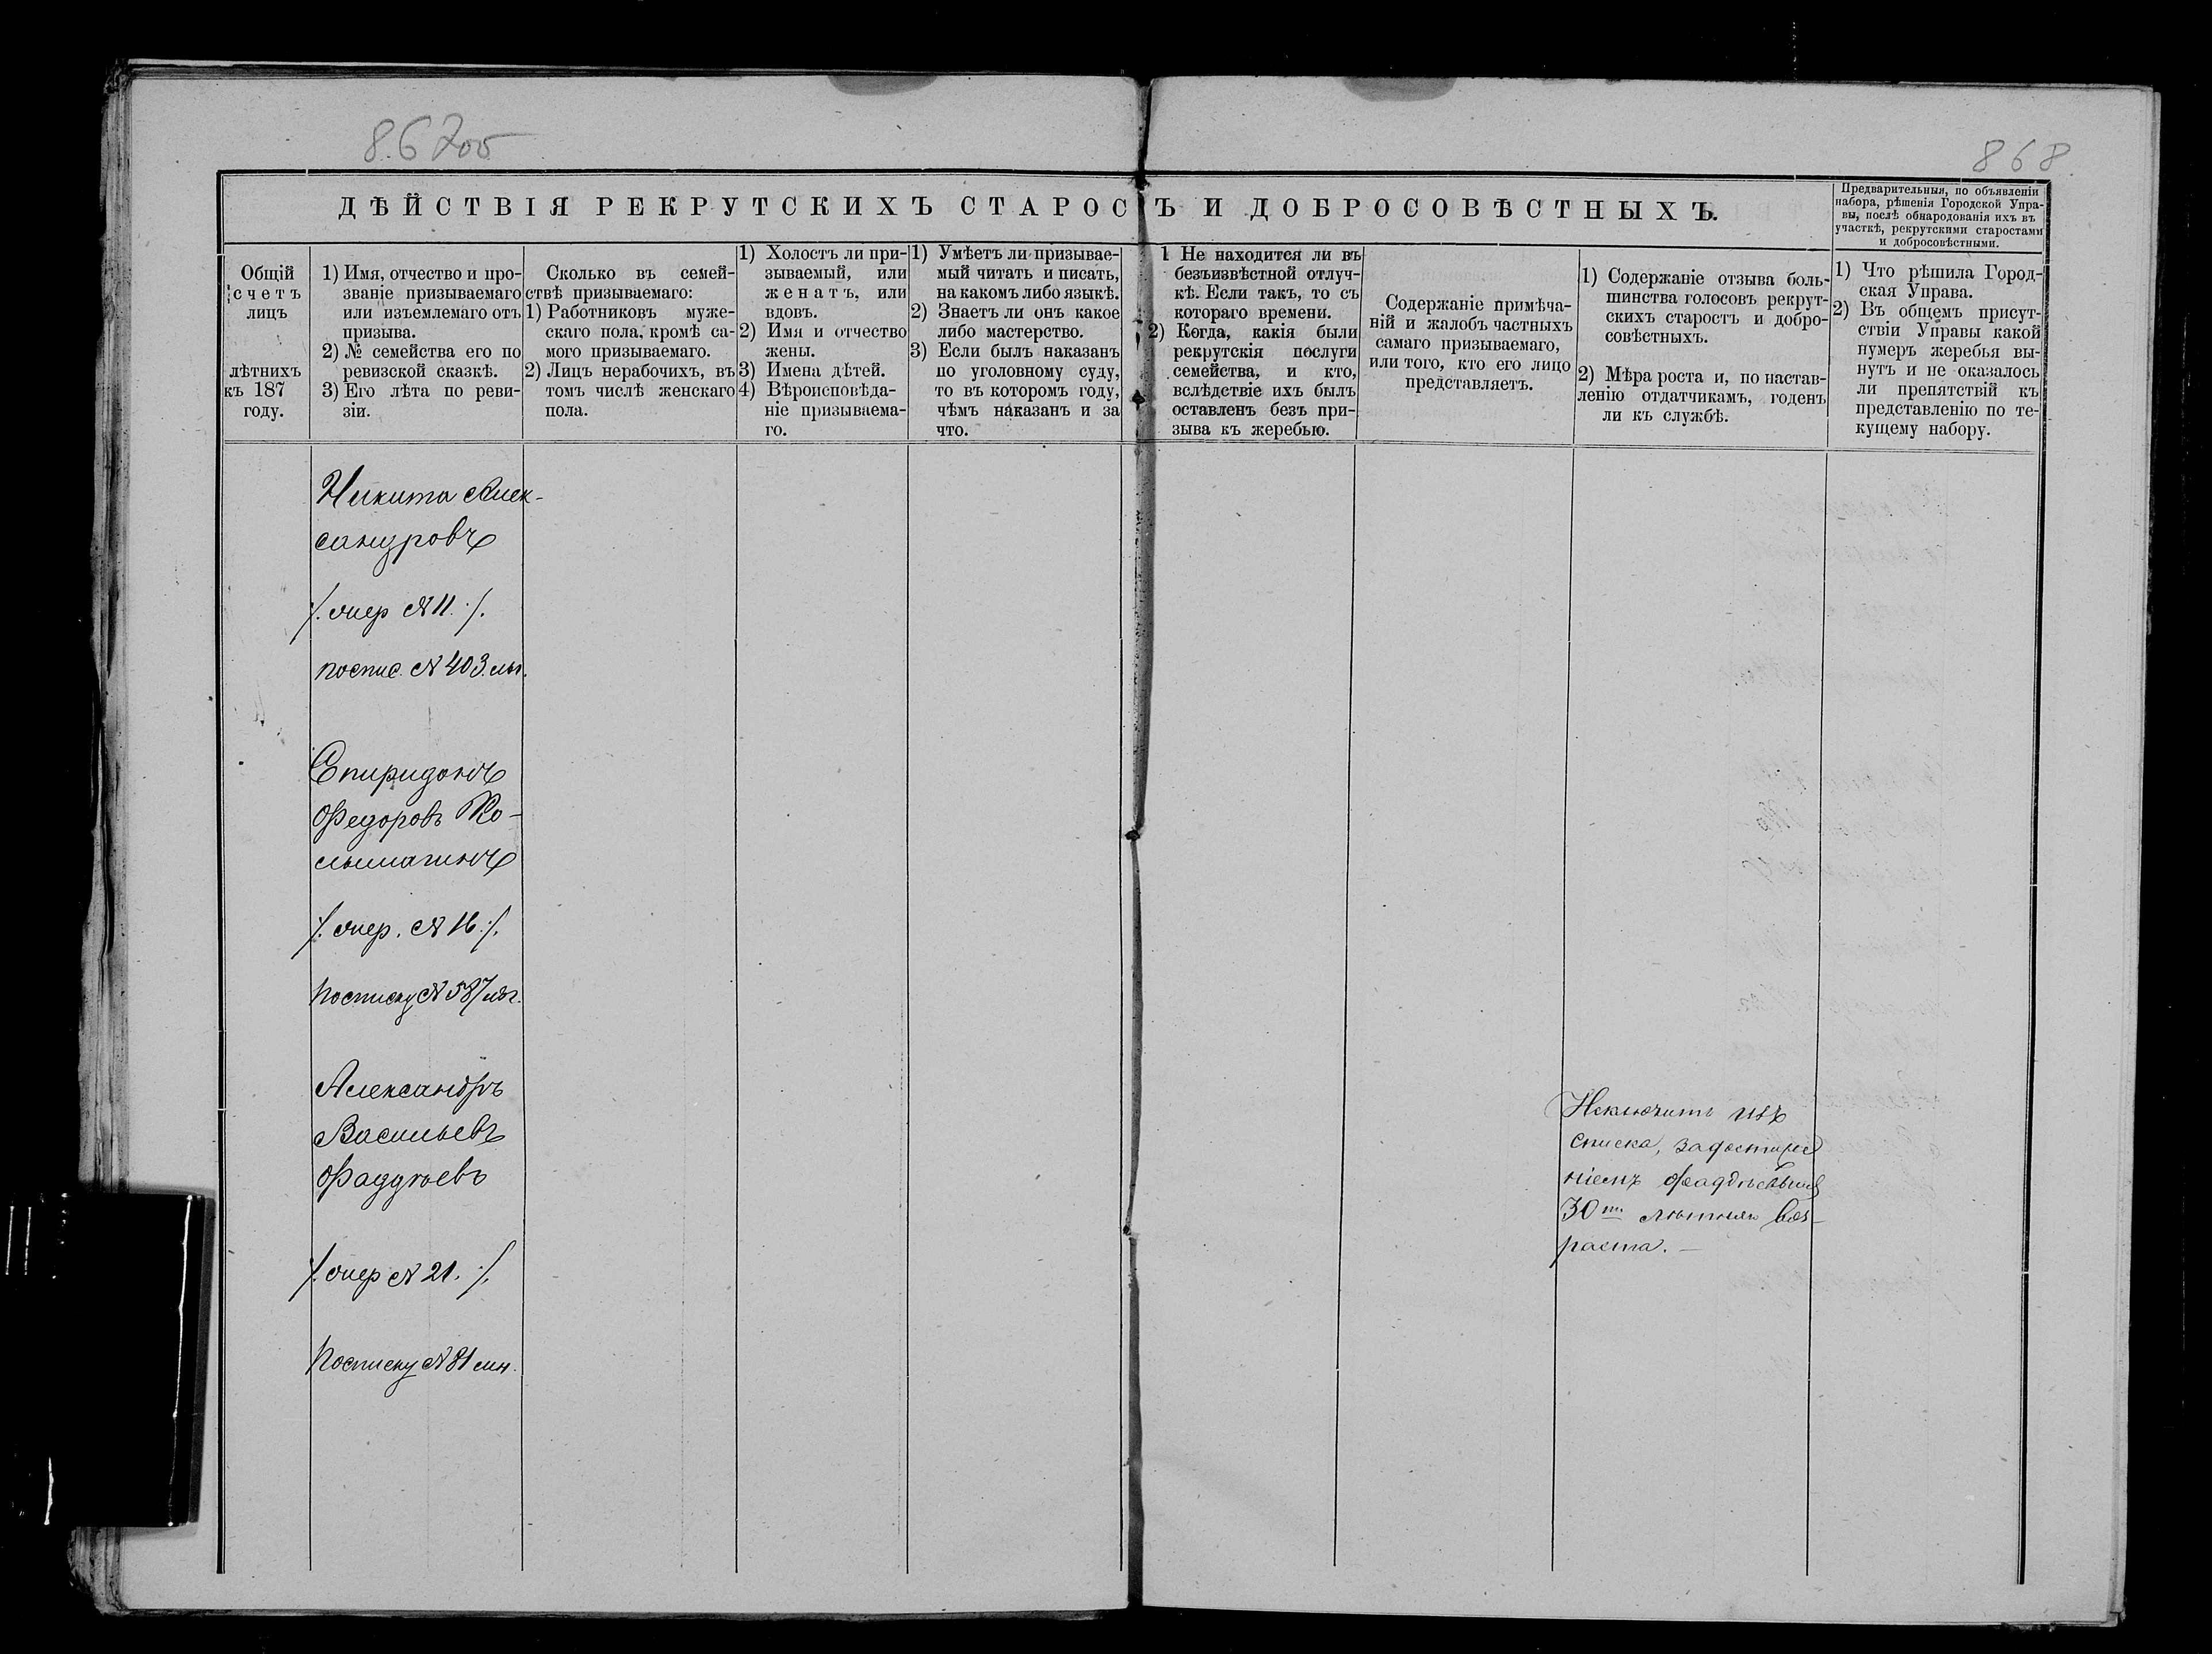 867об
868.
ДѢЙСТВІЯ РЕКРУТСКИХЪ СТАРОСТЪ И ДОБРОСОВѢСТНЫХЪ.
Предварительныя, по объявленіи
набора, рѣшенія Городской Упра-
вы, послѣ обнародованія ихъ въ
участкѣ, рекрутскими старостами
и добросовѣстными.
Общій
счетъ
лицъ
лѣтнихъ
къ 187
году.
1) Имя, отчество и про-
званіе призываемаго
или изъемлемаго отъ
призыва.
2) № семейства его по
ревизской сказкѣ.
3) Его лѣта по реви-
зіи.
Сколько въ семей-
ствѣ призываемаго:
1) Работниковъ муже-
скаго пола, кромѣ са-
мого призываемаго.
2) Лицъ нерабочихъ, въ
томъ числѣ женскаго
пола.
1) Холостъ ли при-
зываемый, или
женатъ, или
вдовъ.
2) Имя и отчество
жены.
3) Имена дѣтей.
4) Вѣроисповѣда-
ніе призываема-
го.
1) Умѣетъ ли призывае-
мый читать и писать,
на какомъ либо языкѣ.
2) Знаетъ ли онъ какое
либо мастерство.
3) Если былъ наказанъ
по уголовному суду,
то въ которомъ году,
чѣмъ наказанъ и за
что.
1 Не находится ли въ
безъизвѣстной отлуч-
кѣ. Если такъ, то съ
котораго времени.
2) Когда, какія были
рекрутскія послуги
семейства, и кто,
вслѣдствіе ихъ былъ
оставленъ безъ при-
зыва къ жеребью.
Содержаніе примѣча-
ній и жалобъ частныхъ
самаго призываемаго,
или того, кто его лицо
представляетъ.
1) Содержаніе отзыва боль-
шинства голосовъ рекрут-
скихъ старостъ и добро-
совѣстныхъ.
2) Мѣра роста и, по настав-
ленію отдатчикамъ, годенъ
ли къ службѣ.
1) Что рѣшила Город-
ская Управа.
2) Въ общемъ присут-
ствіи Управы какой
нумеръ жеребья вы-
нутъ и не оказалось
ли препятствій къ
представленію по те-
кущему набору.
Никита Алек-
сандровъ
/. очер № 11. /.
по спис. № 403.
Спиридонъ
Федоровъ Ко-
лымагинъ
/. очер. № 16 /.
по списку № 587
Александръ
Васильевъ
Фаддѣевъ
/. очер № 21. /.
по списку № 81
Исключить изъ
списка, за достиже
ніемъ Фаддѣевымъ
30ти лѣтняго воз-
раста. —